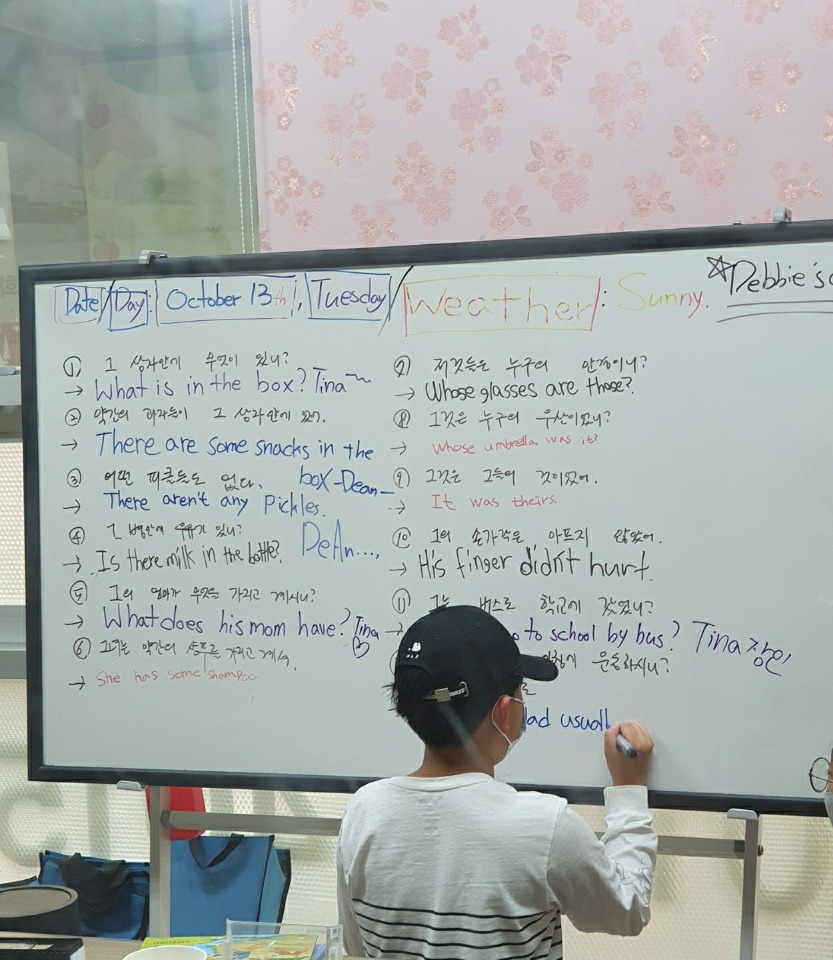 Date/Day: October 13th, Tuesday/Weather: Sunny.
☆Debbie's
① 그 상자안에 무엇이 있니?
→ What is in the box? Tina~~
② 약간의 과자들이 그 상자안에 있어.
→ There are some snacks in the
box -Dean-
③ 어떤 피클들도 없다.
→ There aren't any Pickles.
④ 그 병안에 우유가 있니?
→ Is there milk in the bottle? DeAn....,
⑤ 그의 엄마가 무엇을 가지고 계시니?
→ What does his mom have? Tina♡
⑥ 그녀는 약간의 샴푸를 가지고 계셔.
→ She has some shampoo
⑦ 저것들은 누구의 안경이니?
→ Whose glasses are those?
⑧ 그것은 누구의 우산이었니?
→ whose umbrella was it?
⑨ 그것은 그들의 것이었어.
→ It was theirs.
⑩ 그의 손가락은 아프지 않았어.
→ His finger didn't hurt.
⑪ 그는 버스로 학교에 갔었니?
→ to school by bus? Tina 장인
운동하시니?
dad usuall